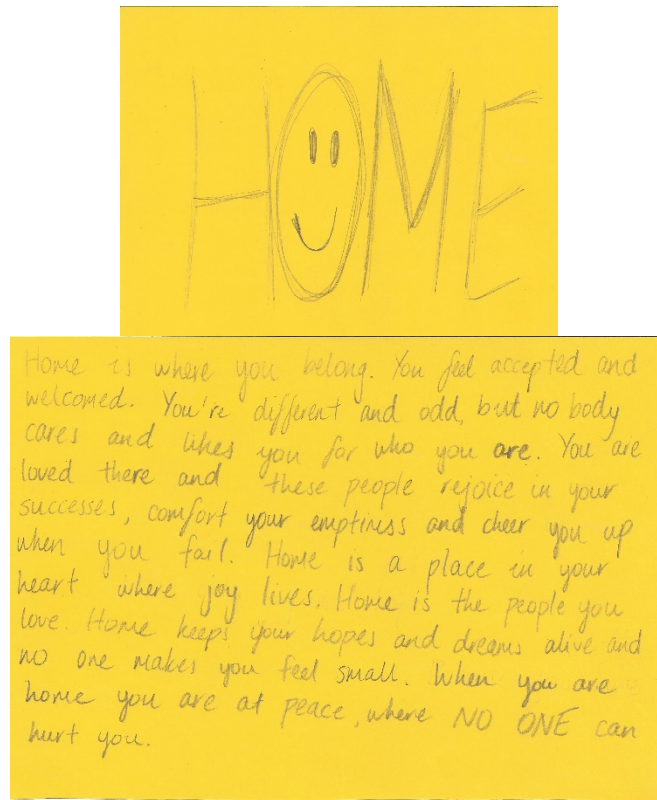 HOME
Home is where you belong. You feel accepted and
welcomed. You're different and odd, but no body
cares and likes you for who you are. You are
loved there and these people rejoice in your
successes, comfort your emptiness and cheer you up
when you fail. Home is a place in your
heart where joy lives. Home is the people you
love. Home keeps your hopes and dreams alive and
no one makes you feel small. When you are
home you are at peace, where NO ONE can
hurt you.